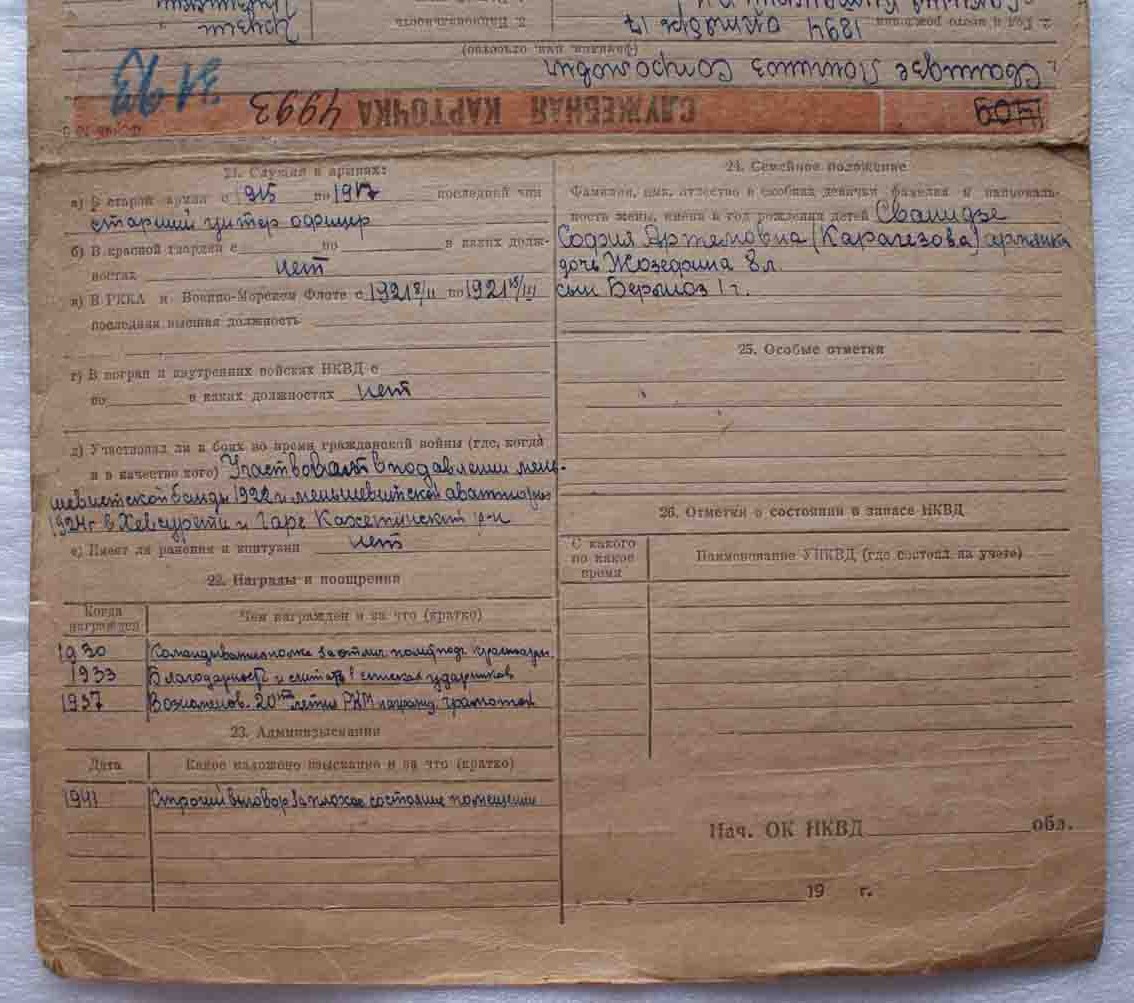 2. Год и место рождения 1894 октябрь 17
3. Национальность
1. Сванидзе Платоз
(фамилия, имя, отчество)
СЛУЖЕБНАЯ КАРТОЧКА 4993
3193
21. Служил в армиях:
а) В старой армии с 1915 по 1917 последний чин
старший унтер офицер
б) В красной гвардии с по в каких долж-
ностях нет
в) В РККА и Военно-Морском Флоте с 1921 8/II по 1921 15/III
последняя высшая должность
г) В погран и внутренних войсках НКВД с
по в каких должностях нет
д) Участвовал ли в боях во время гражданской войны (где, когда
и в качестве кого) Участвовал в подавлении мень-
шевистской банды 1922 и меньшевитской авантюры
1924г в Хевсурети и Гаре Кахетинский р-н
е) Имеет ли ранения и контузии нет
22. Награды и поощрения
Когда награжден
Чем награжден и за что (кратко)
1930
1933 Благодарность и считать ударников
1937 Вознаменов. 20ти летия РКМ награжд. грамотой
23. Админвзыскания
Дата Какое наложено взыскание и за что (кратко)
1941 Строгий выговор за плохое состояние помещения
24. Семейное положение
Фамилия, имя, отчество в скобках девичья фамилия и националь-
ность жены, имена и год рождения детей Сванидзе
София Артемовна (Карагезова) армянка
дочь Жозефина 8 л.
сын Берлиоз 1 г.
25. Особые отметки
26. Отметки о состоянии в запасе НКВД
С какого
по какое
время
Наименование УНКВД (где состоял на учете)
Нач. ОК НКВД обл.
19 г.